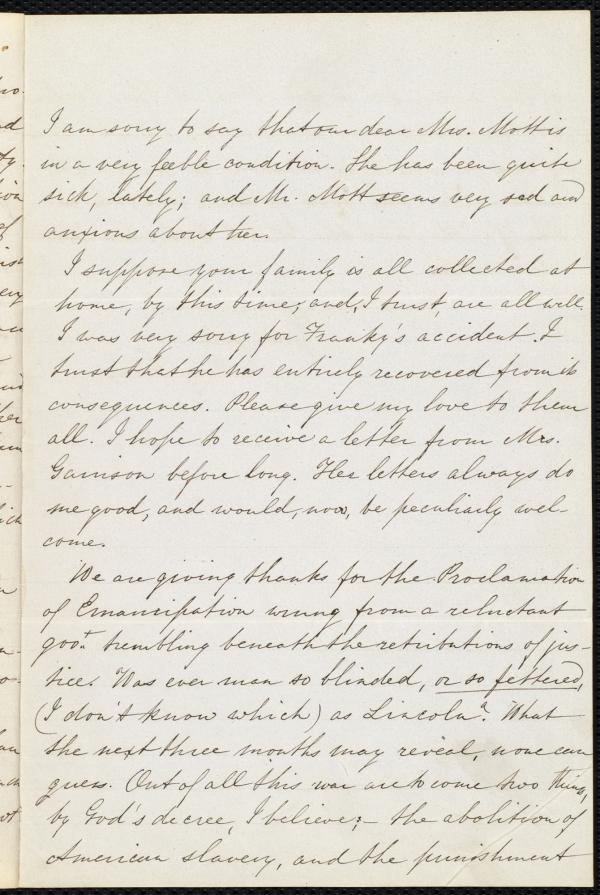 I am sorry to say that our dear Mrs. Mott is
in a very feeble condition. She has been quite
sick, lately; and Mr. Mott seems very sad and
anxious about her.
I suppose your family is all collected at
home, by this time; and, I trust, are all well.
I was very sorry for Franky's accident. I
trust that he has entirely recovered from its
consequences. Please give my love to them
all. I hope to receive a letter from Mrs.
Garrison before long. Her letters always do
me good, and would, now, be peculiarly wel-
come.
We are giving thanks for the Proclamation
of Emancipation wrung from a reluctant
govt. trembling beneath the retributions of jus-
tice. Was ever man so blinded, or so fettered,
(I don't know which) as Lincoln? What
the next three months may reveal, none can
guess. Out of all this war are to come two things,
by God's decree, I believe; – the abolition of
American slavery, and the punishment